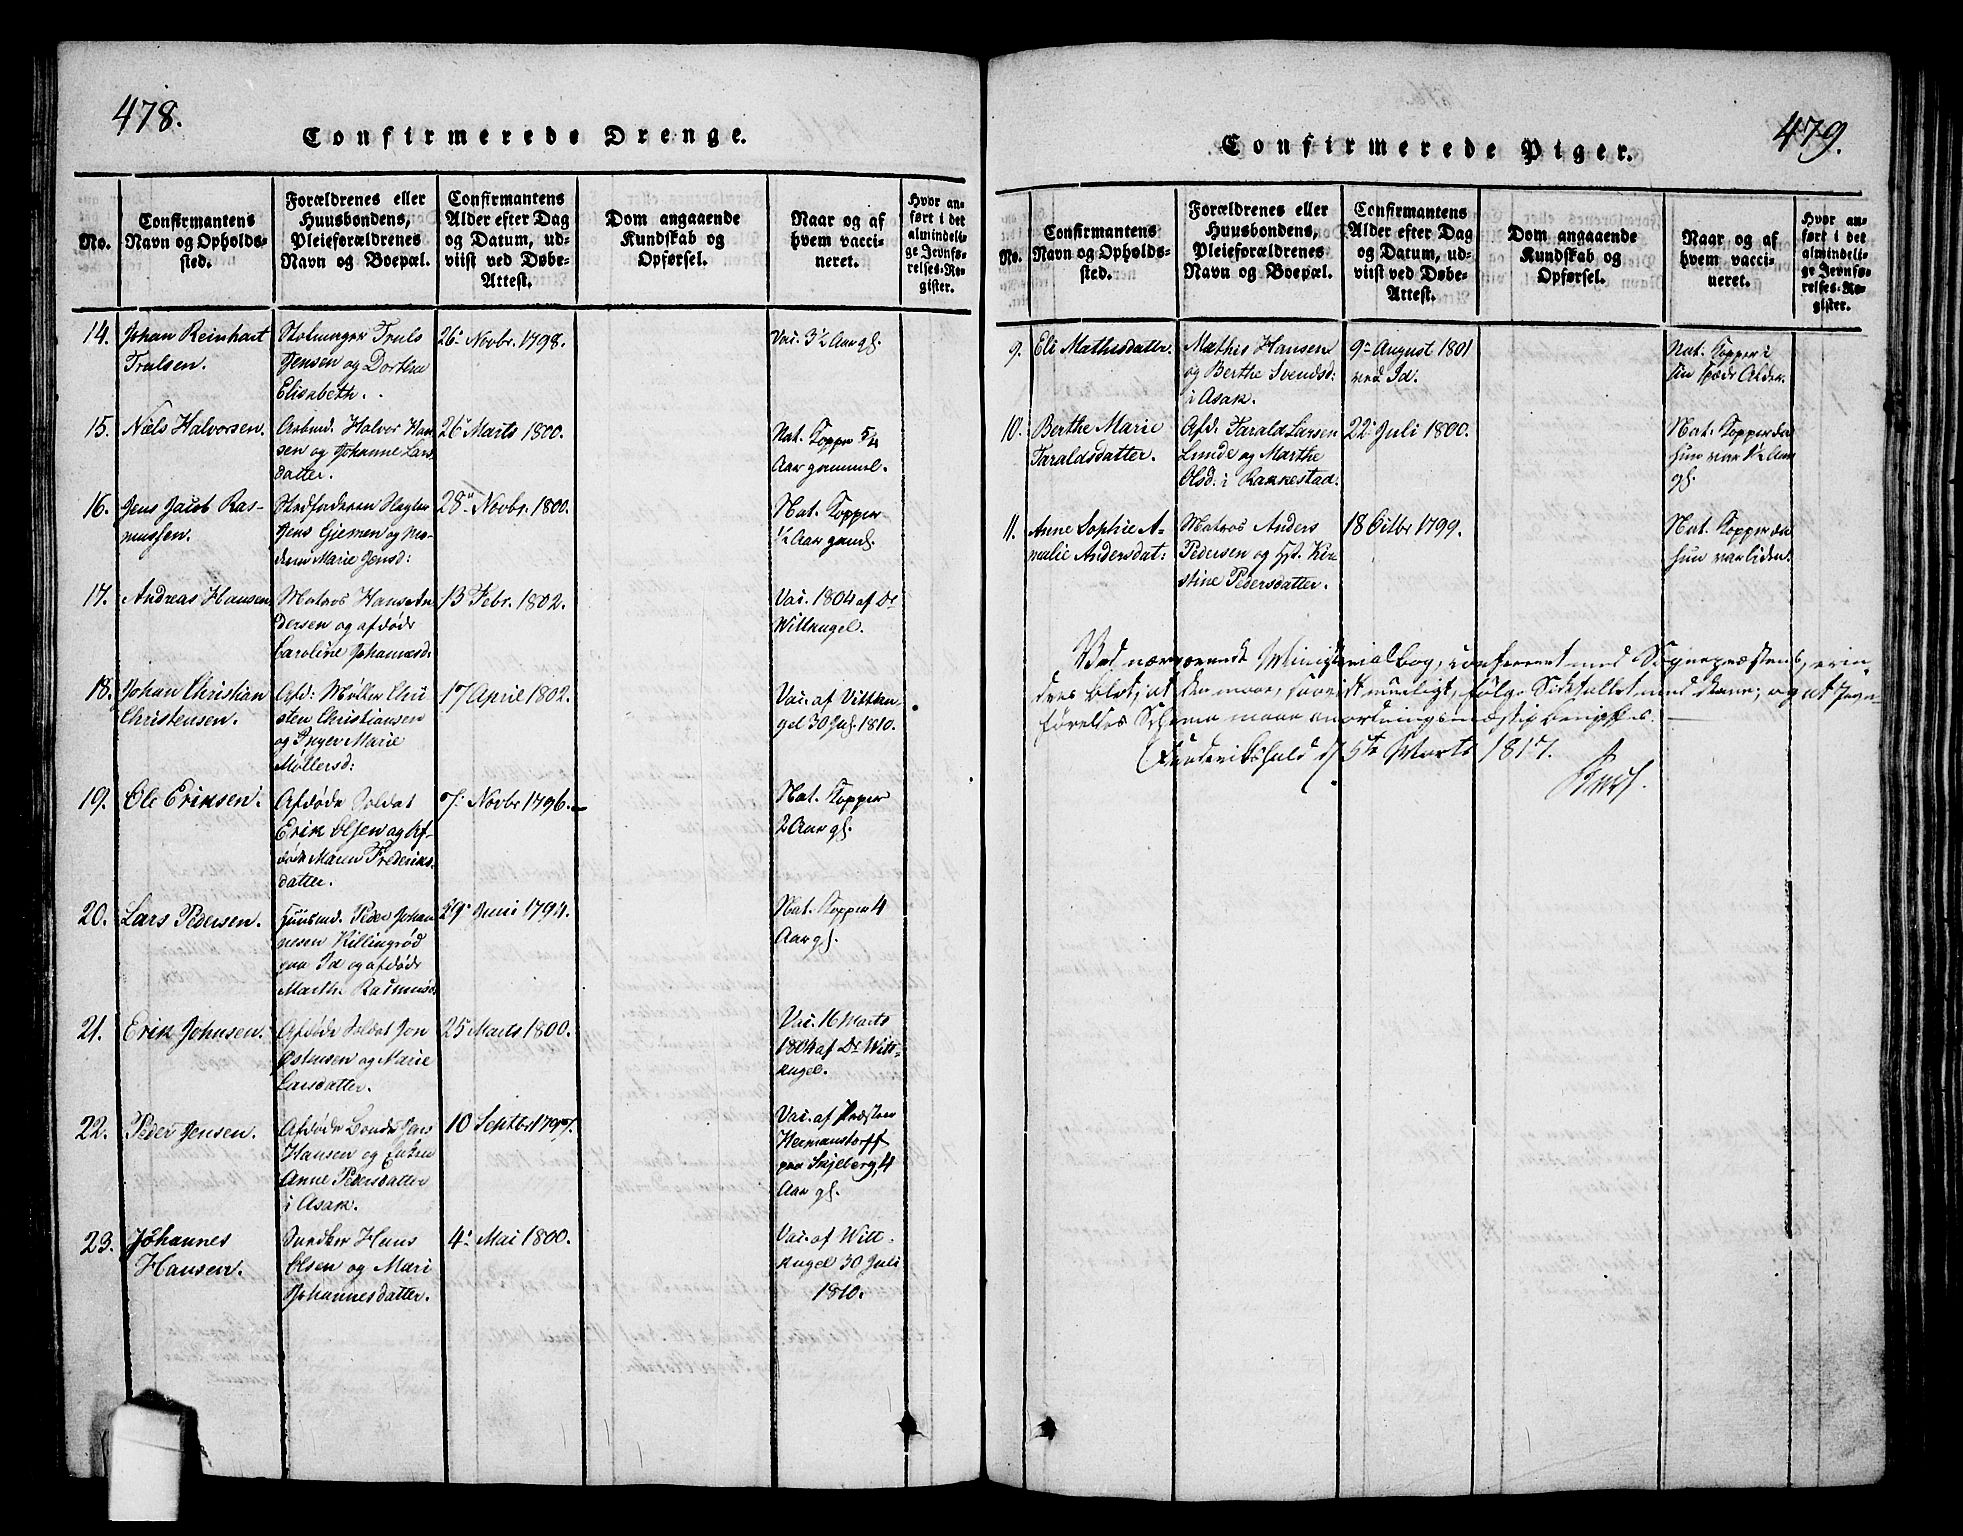 478.
Confirmerede Drenge.
No.
Confirmantens
Navn og Opholds-
sted.
Forældrenes eller
Huusbondens,
Pleieforældrenes
Navn og Boepæl.
Confirmantens
Alder efter Dag
og Datum, ud-
viist ved Døbe-
Attest.
Dom angaaende
Kundskab og
Opførsel.
Naar og af
hvem vacci-
neret.
Hvor an-
ført i det
almindeli-
ge Jevnfø-
relses-Re-
gister.
14. Johan Reinhart
Trulsen.
Truls
Jensen og Dorthea
Elisabeth.
26. Novbr. 1798.
Vac. 3½ Aar gl.
15. Niels Halvorsen.
Arbmd. Halvor Han
sen og Johanne Lars
datter.
26 Marts 1800.
Nat. Kopper 5/4
Aar gammel.
16. Jens Jacob Ras-
mussen.
Stedfaderen
Jens Gjemen og Mo-
deren Marie Jensd:
28. Novbr. 1800.
Nat. Kopper
½ Aar gaml.
17. Andreas Hansen
Matros Hans An
dersen og afdøde
Caroline Johannesd:
13 Febr. 1802.
Vac. 1804 af Dr
Wittkugel.
18. Johan Christian
Christensen.
Afd: Møller Chri
sten Christiansen
og Inger Marie
Møllersd:
17 April 1802.
Vac. af Vittku
gel 30 Jul. 1810.
19. Ole Eriksen.
Afdøde Soldat
Erik Olsen og Af-
døde Maren Frederiks-
datter.
7. Novbr 1796.
Nat. Kopper
2 Aar gl.
20. Lars Pedersen.
Huusmd. Peder Johan
nesen Killingrød
paa Id og afdøde
Marthe Rasmusd:
29. Juni 1794.
Nat. Kopper 4
Aar gl.
21. Erik Johnsen.
Afdøde Soldat Jon
Østensen og Marie
Larsdatter.
25 Marts 1800.
Vac. 16 Marts
1804 af Dr Witt-
kugel.
22. Peder Jensen.
Afdøde Bonde Jens
Hansen og Enken
Anne Pedersdatter
i Asak.
10 Septbr 1797.
Vac. af Præsten
Hermanstorff
paa Skjeberg, 4
Aar gl.
23. Johannes
Hansen.
Hans
Olsen og Mari
Johannesdatter.
4. Mai 1800.
Vac. af Witt-
kugel 30 Juli
1810.
479.
Confirmerede Piger.
No.
Confirmantens
Navn og Opholds-
sted.
Forældrenes eller
Huusbondens,
Pleieforældrenes
Navn og Boepæl.
Confirmantens
Alder efter Dag
og Datum, ud-
viist ved Døbe-
Attest.
Dom angaaende
Kundskab og
Opførsel.
Naar og af
hvem vacci-
neret.
Hvor an-
ført i det
almindeli-
ge Jevnfø-
relses-Re-
gister.
9. Eli Mathisdatter.
Mathis Hansen
og Berthe Svendsd:
i Asak.
9. August 1801
ved Id.
Nat. Kopper i
sin spæde Alder.
10. Berthe Marie
Taraldsdatter.
Afd: Tarald Larsen
Lunde og Marthe
Olsd: i Rakkestad.
22. Juli 1800.
Nat. Kopper da
hun var 1½ Aar
gl.
11. Anne Sophie A-
malie Andersdat:
Matros Anders
Pedersen og Kir-
stine Pedersdatter.
18 Octbr 1799.
Nat. Kopper da
hun var liden.
Ved nærværende Ministerialbog, confereret med Sognepræstens, erin-
dres blot, at den maae, saavidt mueligt, følge Sidetallet med denne; og at Jevn-
førelses Schema maae anordningsmæssig benyttes.
Frederikshald d. 5te Marts 1817.